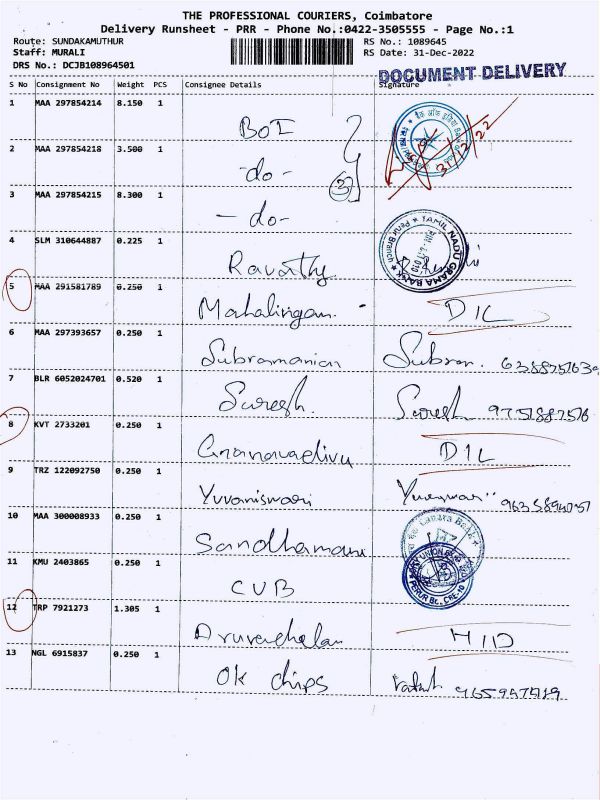 THE PROFESSIONAL COURIERS, Coimbatore
Delivery Runsheet - PRR - Phone No.:0422-3505555 - Page No.:1
Route: SUNDAKAMUTHUR RS No.: 1089645
Staff: MURALI RS Date: 31-Dec-2022
DRS No.: DCJB108964501
DOCUMENT DELIVERY
S No Consignment No Weight PCS Consignee Details Signature
1 MAA 297854214 8.150 1 BOI
31/12/22
2 MAA 297854218 3.500 1 -do-
3
3 MAA 297854215 8.300 1 -do-
4 SLM 310644887 0.225 1 Ravathy
TAMIL NADU GRAMA BANK
Perur Branch
5 MAA 291581789 0.250 1 Mahalingam D/L
6 MAA 297393657 0.250 1 Subramanian Subram.
7 BLR 6052024701 0.520 1 Suresh. Suresh 9751887516
8 KVT 2733201 0.250 1 Gnanavadivu D/L
9 TRZ 122092750 0.250 1 Yuvaniswari
10 MAA 300008933 0.250 1 Sandhamani
Canara Bank
11 KMU 2403865 0.250 1 CUB
12 TRP 7921273 1.305 1 Aruvachalam H/D
13 NGL 6915837 0.250 1 OK chips